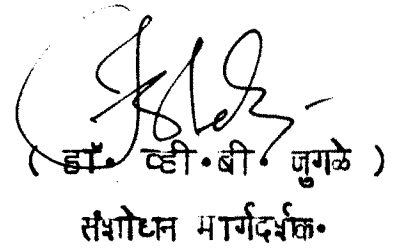 ( डॉ. व्ही.बी. जुगळे )
संशोधन मार्गदर्शक.